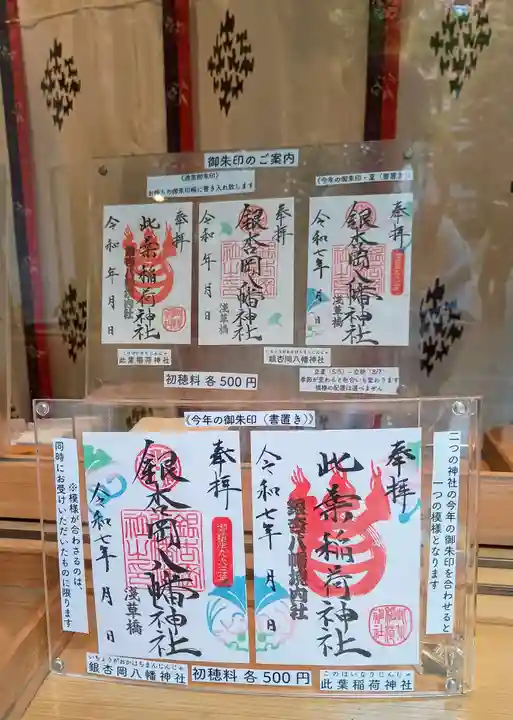 御朱印のご案内
《通常御朱印》
お持ちの御朱印帳に書き入れ致します
《今年の御朱印・夏(書置き)》
奉拝
此葉稲荷神社
銀杏八幡境内社
令和 年 月 日
奉拝
銀杏岡八幡神社
浅草橋
令和 年 月 日
奉拝
銀杏岡八幡神社
浅草橋
令和七年 月 日
このはいなりじんじゃ
此葉稲荷神社
初穂料 各500円
いちょうがおかはちまんじんじゃ
銀杏岡八幡神社
立夏(5/5)~立秋(8/7)
季節が変わると色合いも変わります
模様の配置は選べません
《今年の御朱印(書置き)》
二つの神社の今年の御朱印を合わせると
一つの模様となります
奉拝
此葉稲荷神社
銀杏八幡境内社
令和七年 月 日
奉拝
銀杏岡八幡神社
浅草橋
令和七年 月 日
※模様が合わさるのは、
同時にお受けいただいたものに限ります
いちょうがおかはちまんじんじゃ
銀杏岡八幡神社
初穂料 各500円
このはいなりじんじゃ
此葉稲荷神社